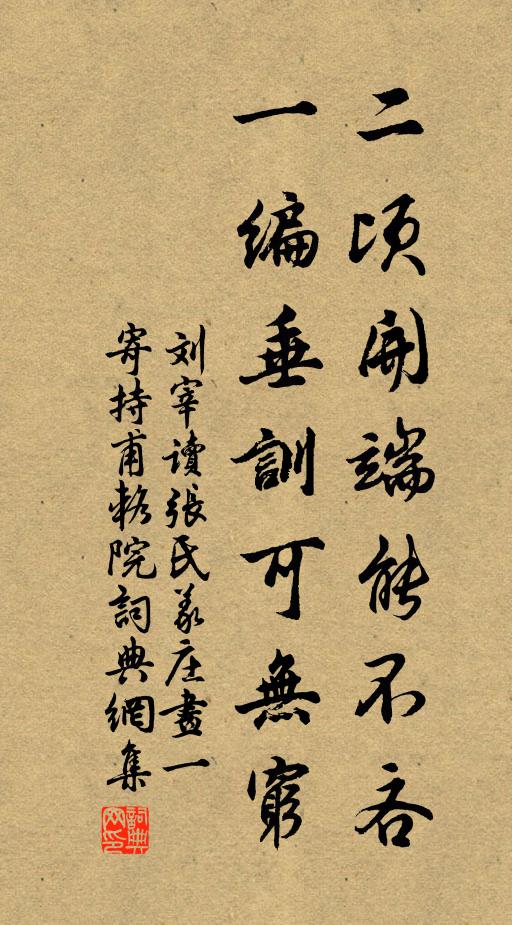 二頃開端能不吝
一編垂訓可無窮
刘宰讀張氏義庄畫一
寄持甫較院詞典網集
詞典网印